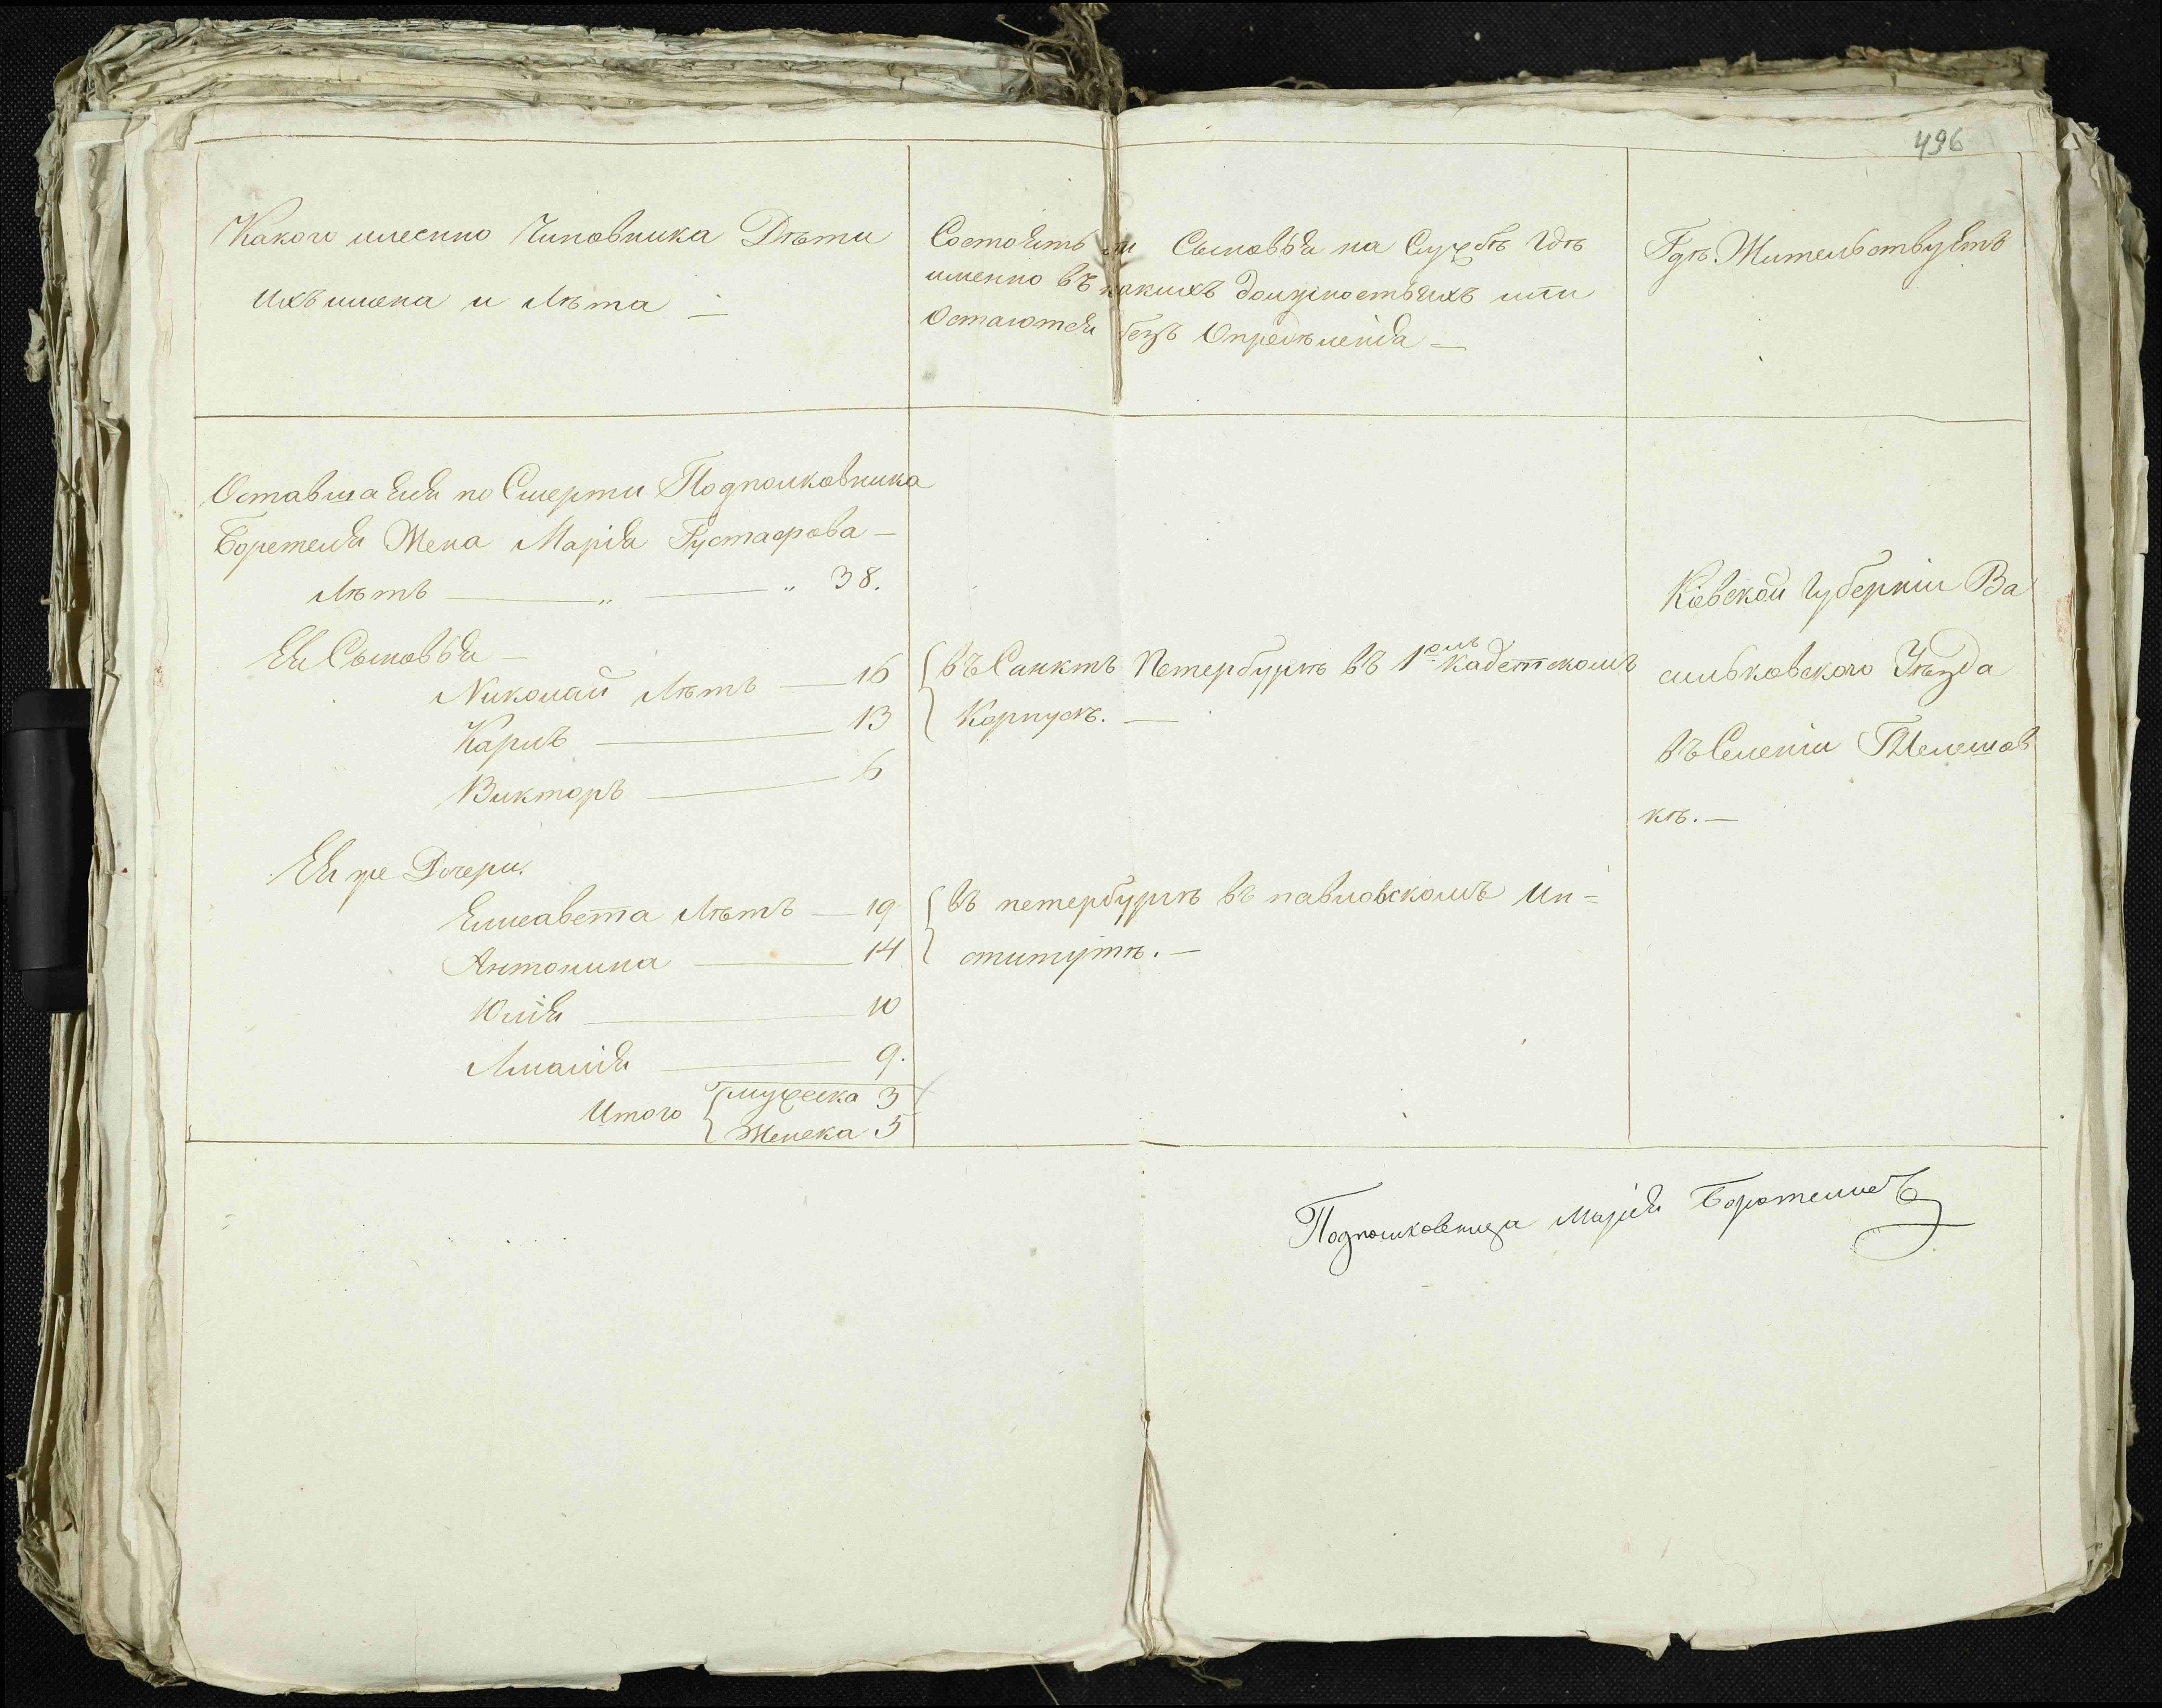 496
Какого именно Чиновника Дѣти
Ихъ имена и лѣта —
Состоятъ ли Сыновья на Службѣ Гдѣ
именно въ какихъ должностяхъ или
Остаются безъ Опредѣленія —
Гдѣ Жительствуютъ
Оставшаяся по Смерти Подполковника
Боретеля Жена Марія Густафова —
Лѣтъ — „ — „ 38.
Ея Сыновья —
Николай Лѣтъ — 16
Карлъ — 13
Викторъ — 6
Ея же Дочери.
Елисавета Лѣтъ — 19
Антонина — 14
Юлія — 10
Амалія — 9.
Итого мужеска 3
Женска 5
въ Санктъ Петербургѣ въ 1омъ кадетскомъ
Корпусѣ. —
въ петербургѣ въ павловскомъ Ин=
ститутѣ. —
Кіевской Губерніи Ва
сильковского Уѣзда
въ Селеніи
кѣ. —
Подполковница Марія